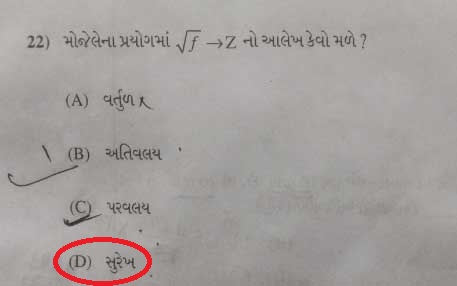 22) મોજેલેના પ્રયોગમાં √f → Z નો આલેખ કેવો મળે ?
(A) વર્તુળ
(B) અતિવલય
(C) પરવલય
(D) સુરેખ